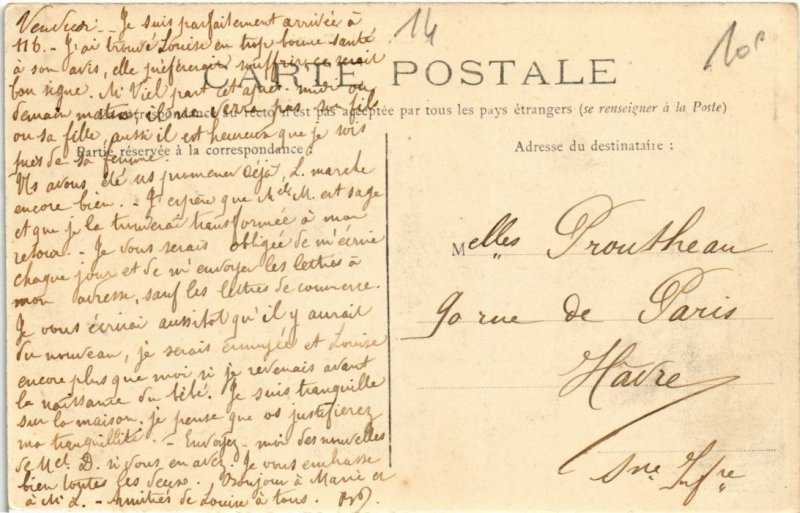 Vendredi - Je suis parfaitement arrivée à
11b. - J'ai trouvé Louise en trop bonne santé
à son avis, elle préfèrerait souffrir ce serait
bon signe. Mr Viel part cet après-midi ou
demain matin, il ne verra pas son fils
ou sa fille, aussi il est heureux que je sois
près de sa femme.
Ns avons été ns promener déjà, L. marche
encore bien. - J'espère que Mlle M. est sage
et que je la trouverai transformée à mon
retour. - Je vous serais obligée de m'écrire
chaque jour et de m'envoyer les lettres à
mon adresse, sauf les lettres de commerce.
Je vous écrirai aussitôt qu'il y aurait
du nouveau, je serais ennuyée et Louise
encore plus que moi si je revenais avant
la naissance du bébé. Je suis tranquille
sur la maison, je pense que vs justifierez
ma tranquillité. - Envoyez-moi des nouvelles
de Mel. D. si vous en avez. Je vous embrasse
bien toutes les deux. Bonjour à Marie et
à Ml L. - Amitiés de Louise à tous.
14
10c
CARTE POSTALE
La correspondance au recto n'est pas acceptée par tous les pays étrangers (se renseigner à la Poste)
Partie réservée à la correspondance
Adresse du destinataire :
Melles Proutheau
90 rue de Paris
Hâvre
Sne Infre